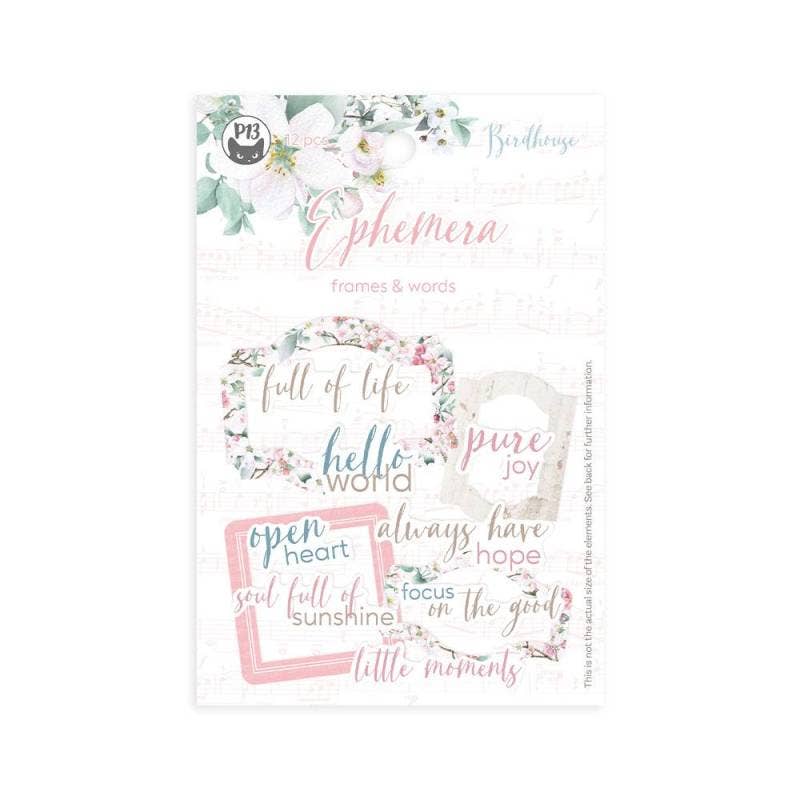 P13
12 pcs
Birdhouse
Ephemera
frames & words
full of life
hello
world
pure
joy
open
heart
always have
hope
soul full of
sunshine
focus
on the good
little moments
This is not the actual size of the elements. See back for further information.